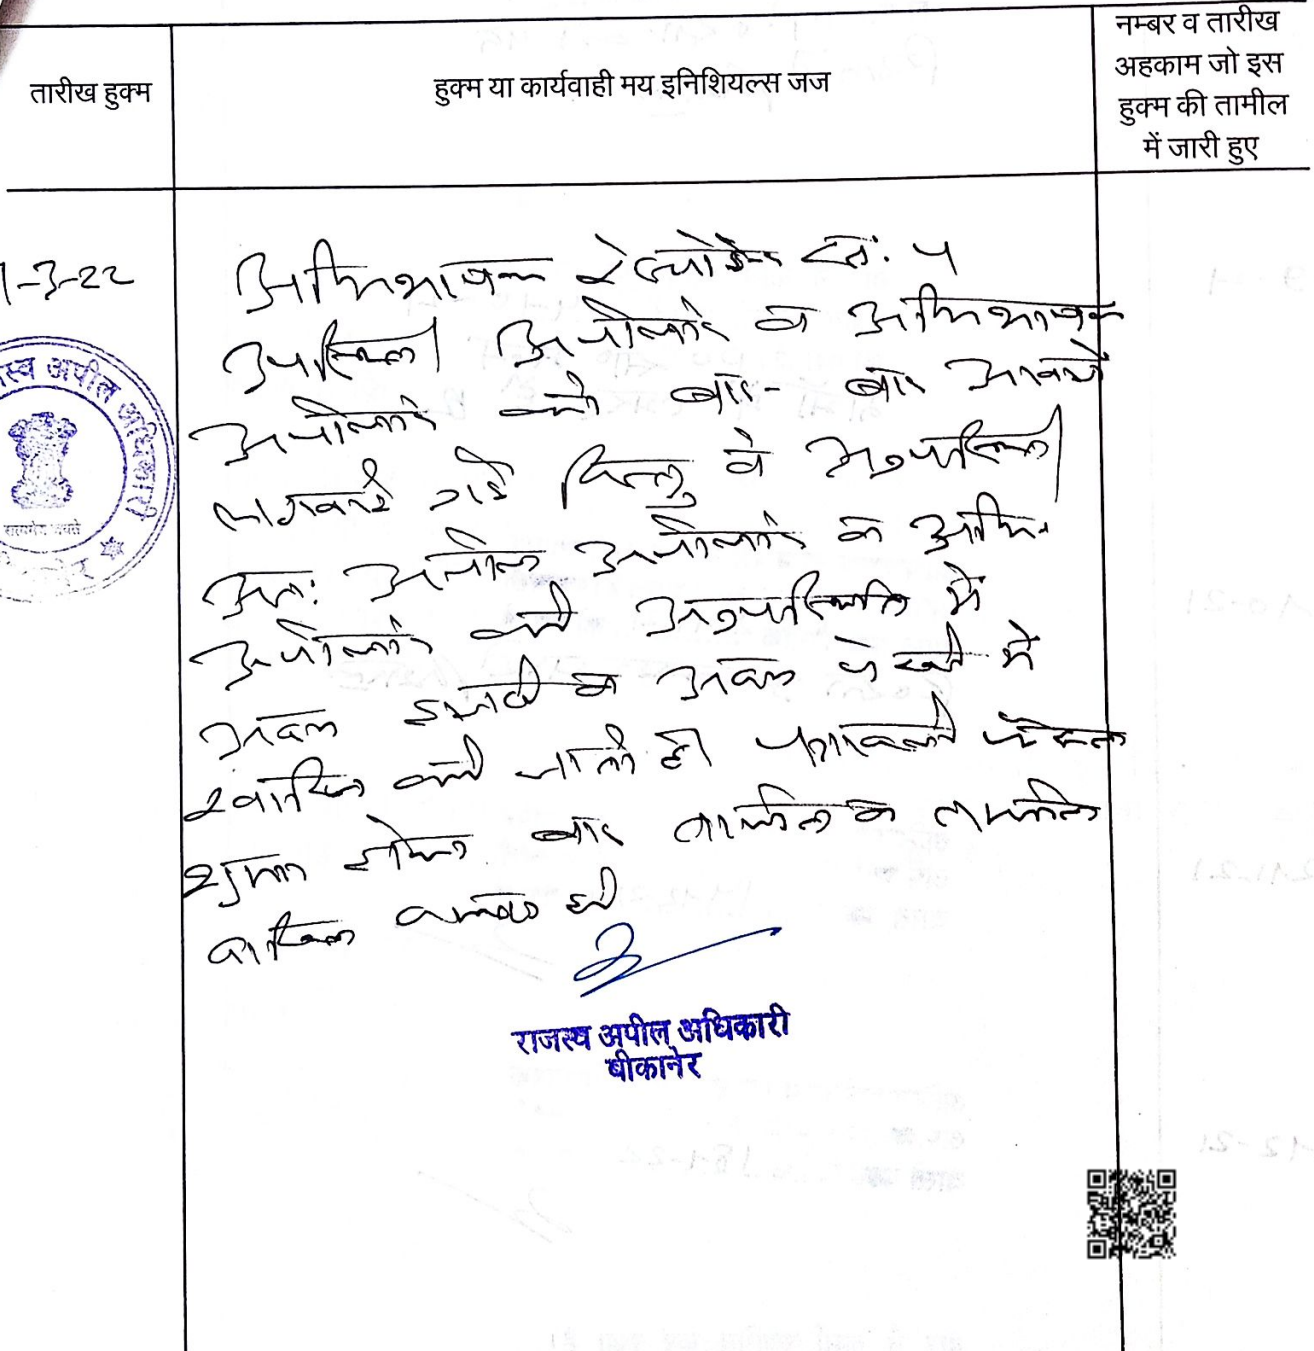 तारीख हुक्म
हुक्म या कार्यवाही मय इनिशियल्स जज
नम्बर व तारीख
अहकाम जो इस
हुक्म की तामील
में जारी हुए
1-3-22
अभिभाषक रेस्पोडेन्ट सं. 4
उपस्थित। अपीलांट व अभिभाषक
अपीलांट को बार-बार आवाजें
लगवाई गई किन्तु वे अनुपस्थित।
अतः अपील अपीलांट व अभि.
अपीलांट की अनुपस्थिति में
अदम हाजरी व अदम पैरवी में
खारिज की जाती है। पत्रावली फैसल
शुमार होकर बाद तामील व तकमील
दाखिल दफ्तर हो
राजस्व अपील अधिकारी
बीकानेर
स्व अपील अधिकारी
सत्यमेव जयते